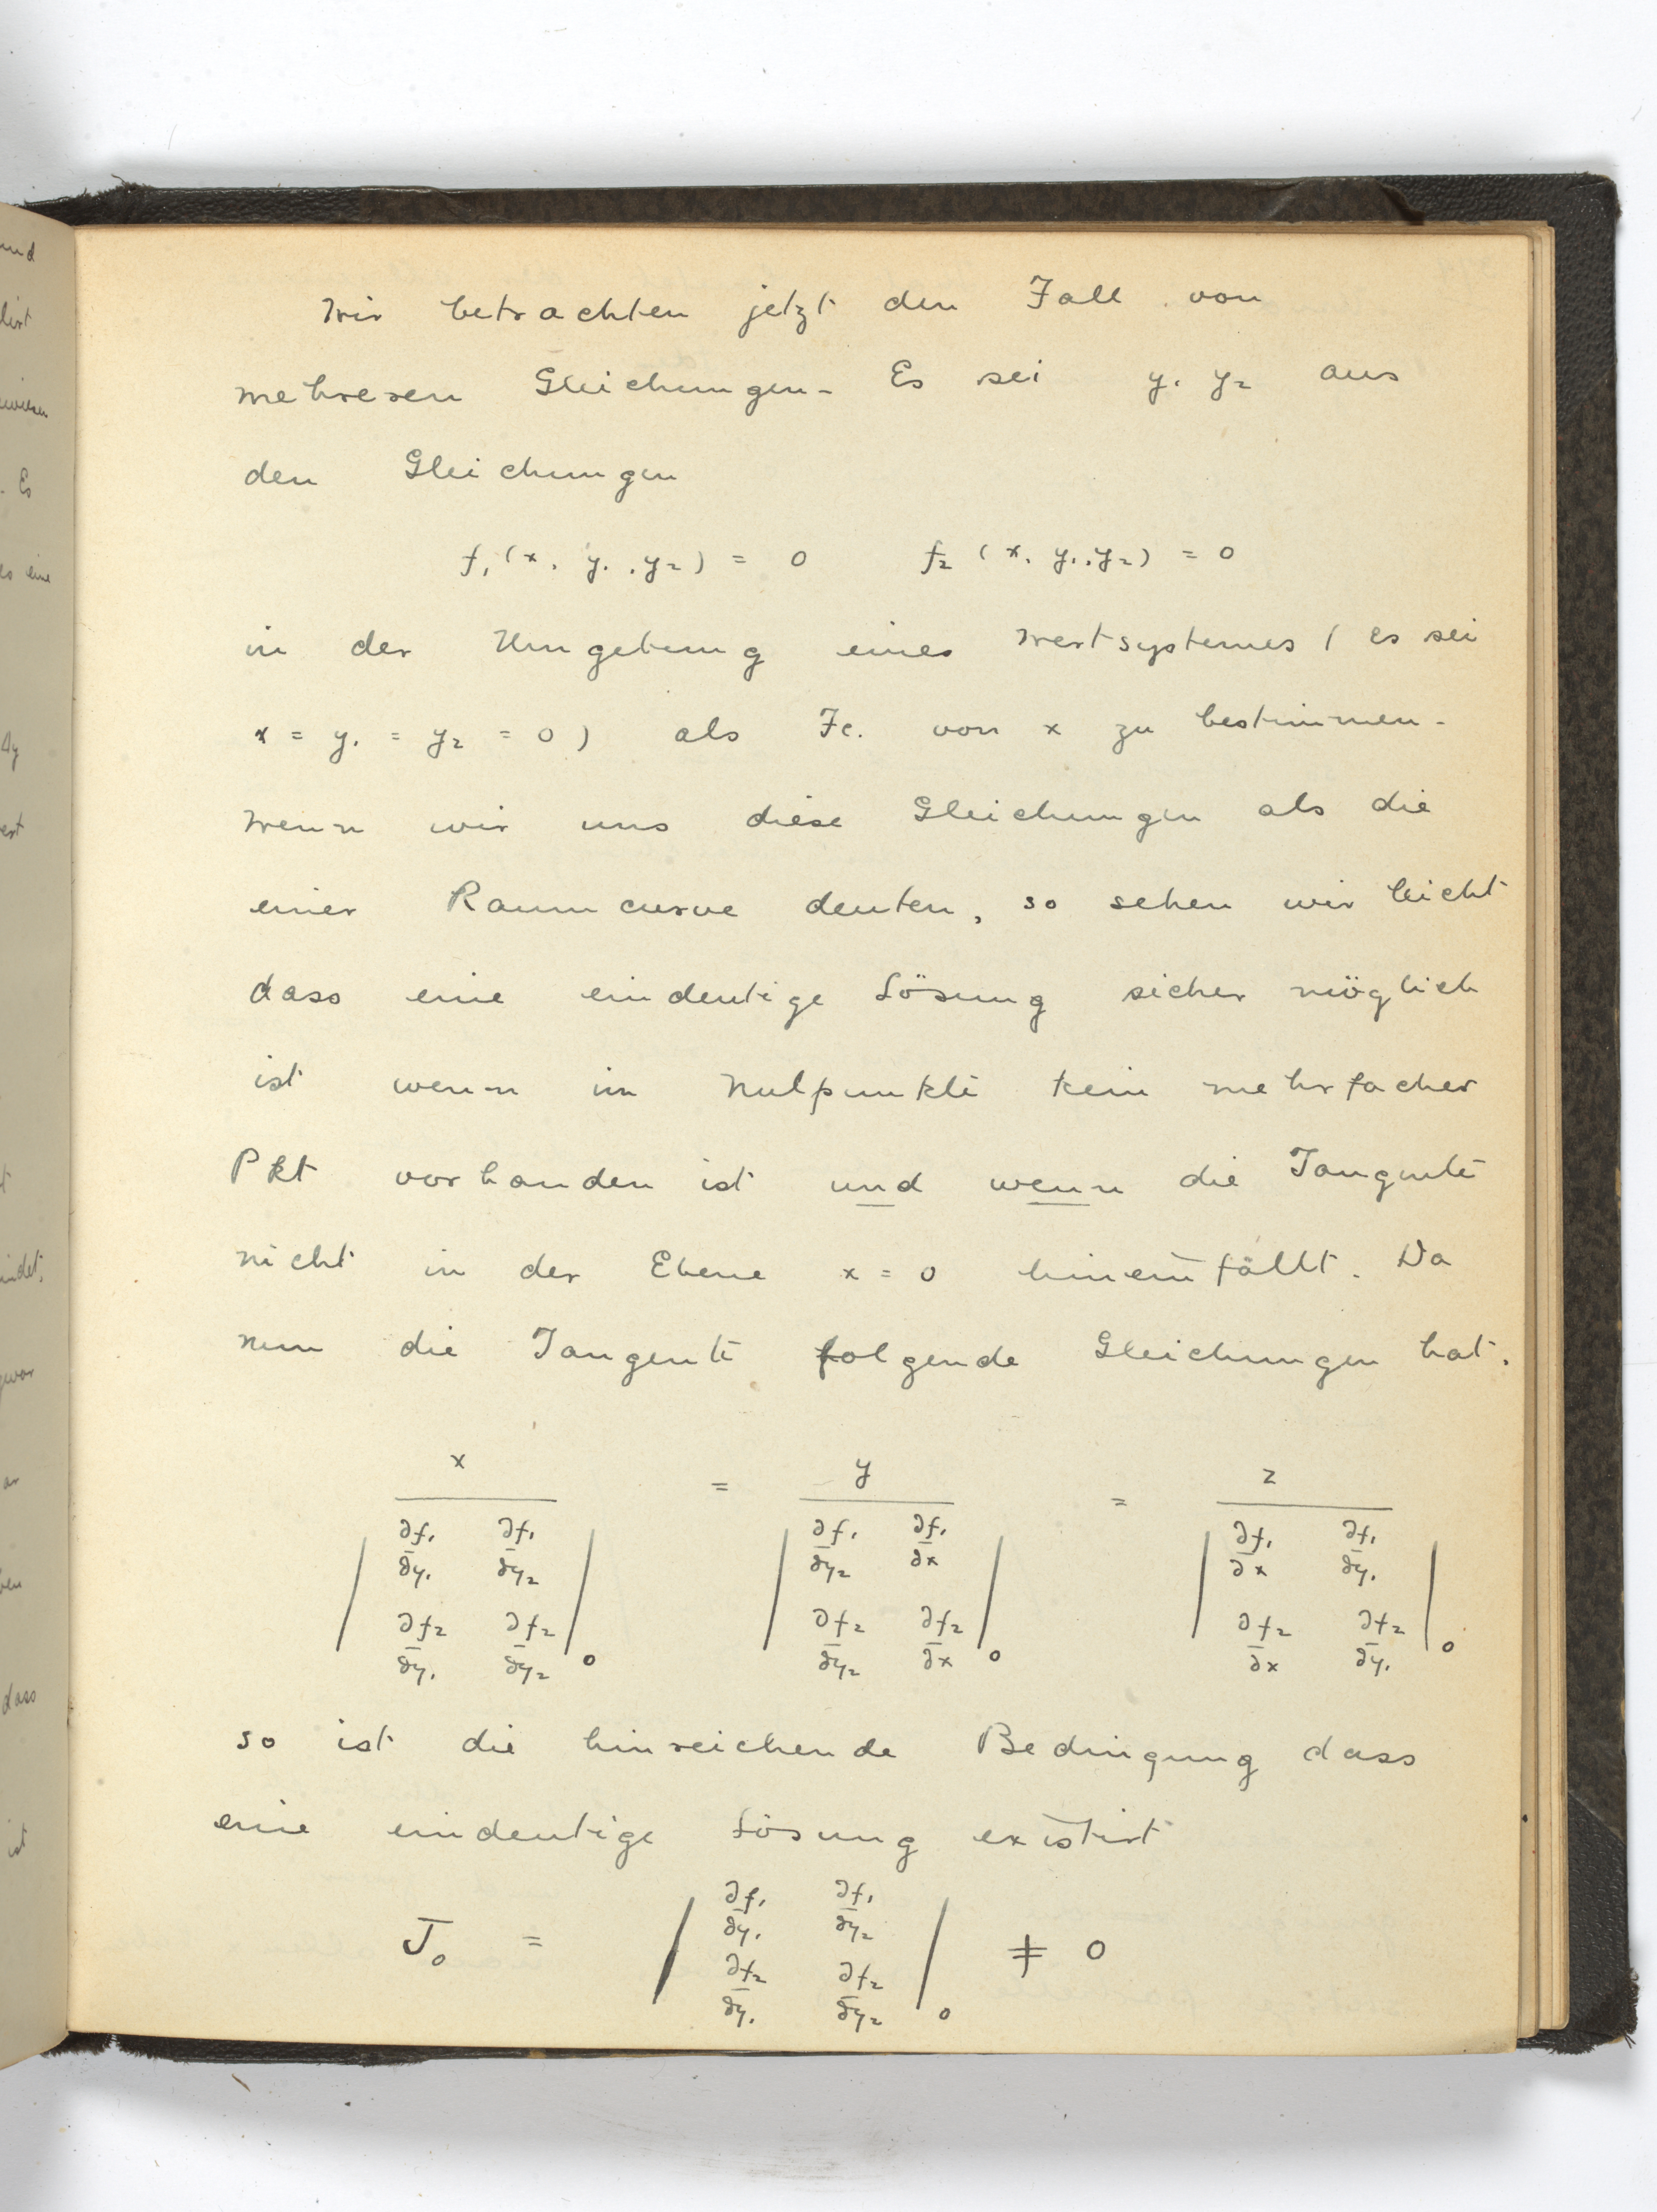 Wir betrachten jetzt den Fall von
mehreren Gleichungen. Es sei y₁ y₂ aus
den Gleichungen
f₁ (x, y₁, y₂) = 0 f₂ (x, y₁, y₂) = 0
in der Umgebung eines Wertsystemes ( es sei
x = y₁ = y₂ = 0 ) als Fc. von x zu bestimmen.
Wenn wir uns diese Gleichungen als die
einer Raumcurve deuten, so sehen wir leicht
dass eine eindeutige Lösung sicher möglich
ist wenn im Nulpunkte kein mehrfacher
Pkt vorhanden ist und wenn die Tangente
nicht in der Ebene x = 0 hineinfällt. Da
nun die Tangente folgende Gleichungen hat.
x = y = z
∂f₁ ∂f₁ ∂f₁ ∂f₁ ∂f₁ ∂f₁
∂y₁ ∂y₂ ∂y₂ ∂x ∂x ∂y₁
∂f₂ ∂f₂ ∂f₂ ∂f₂ ∂f₂ ∂f₂
∂y₁ ∂y₂ 0 ∂y₂ ∂x 0 ∂x ∂y₁ 0
so ist die hinreichende Bedingung dass
eine eindeutige Lösung existirt
∂f₁ ∂f₁
∂y₁ ∂y₂
J₀ = ≠ 0
∂f₂ ∂f₂
∂y₁ ∂y₂ 0